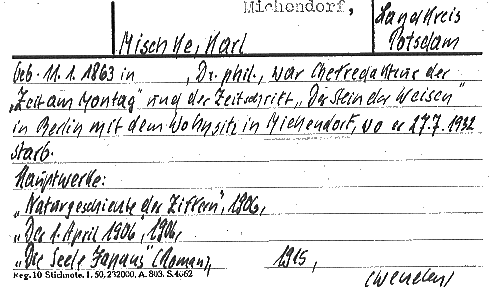 Michendorf,
Landkreis
Potsdam
Mischke, Karl
Geb. 11.1.1863 in , Dr. phil., war Chefredakteur der
„Zeit am Montag" und der Zeitschrift „Der Stein der Weisen"
in Berlin mit dem Wohnsitz in Michendorf, wo er 27.7.1932
starb.
Hauptwerke:
„Naturgeschichte der Ziffern", 1906,
„Der 1. April 1906", 1906,
„Die Seele Japans" (Roman), 1915,
Reg. 10 Stichnote. I. 50, 232000, A. 803. S. 4662